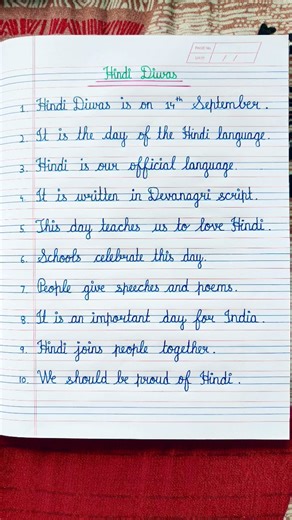 PAGE NO.
DATE / /
Hindi Diwas
1. Hindi Diwas is on 14th September.
2. It is the day of the Hindi language.
3. Hindi is our official language
4. It is written in Devanagri script.
5. This day teaches us to love Hindi.
6. Schools celebrate this day.
7. People give speeches and poems.
8. It is an important day for India.
9. Hindi joins people together.
10. We should be proud of Hindi.